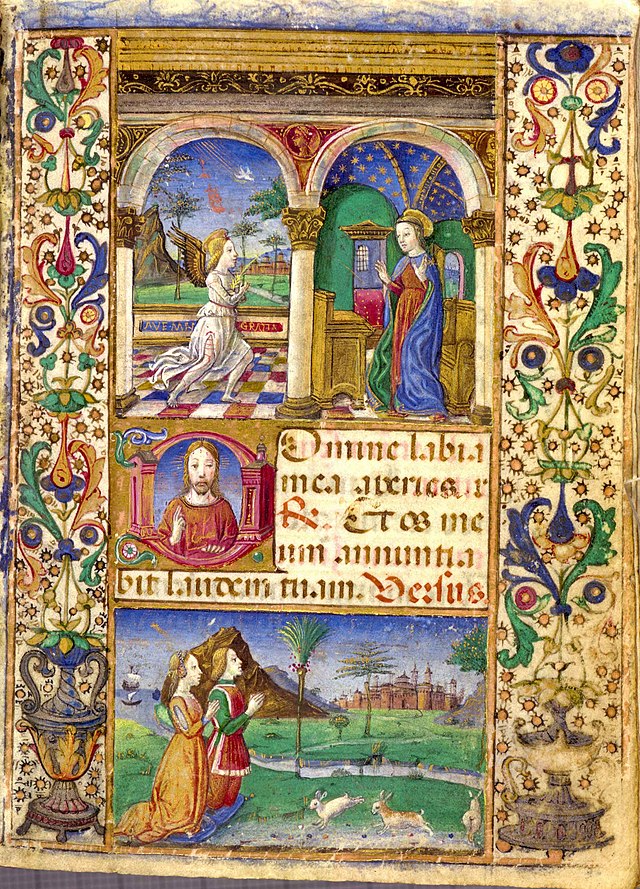 AVE GRATIA
DOmine labia
mea aperies
Et os me
um annuntia
bit laudem tuam. Versus.